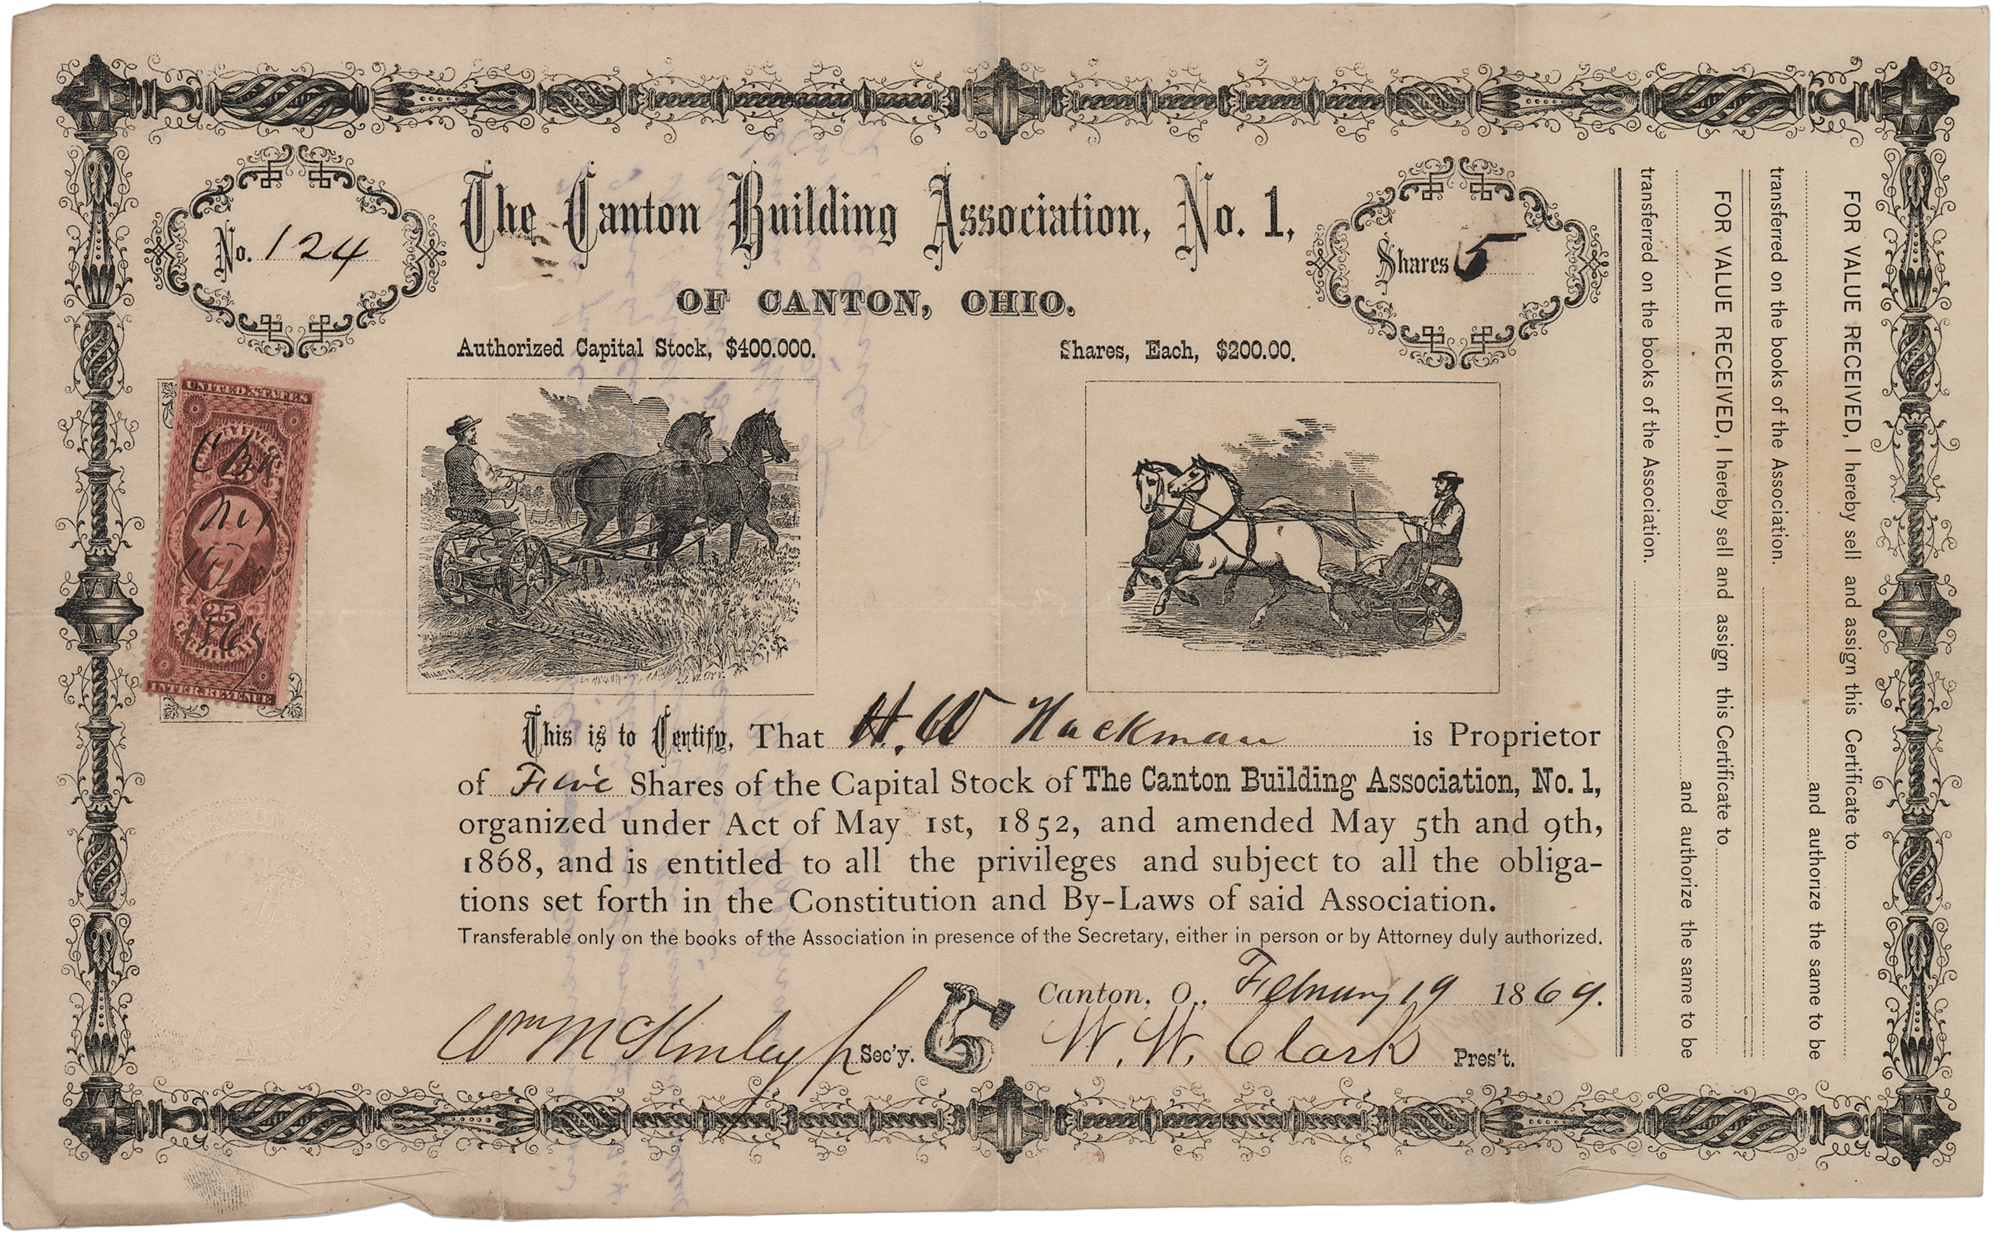 The Canton Building Association, No. 1,
No. 124
Shares 5
OF CANTON, OHIO.
Authorized Capital Stock, $400.000.
Shares, Each, $200.00.
UNITED STATES
25
CERTIFICATE
1869
INTER. REVENUE
This is to Certify, That H. W Hackman is Proprietor
of Five Shares of the Capital Stock of The Canton Building Association, No. 1,
organized under Act of May 1st, 1852, and amended May 5th and 9th,
1868, and is entitled to all the privileges and subject to all the obliga-
tions set forth in the Constitution and By-Laws of said Association.
Transferable only on the books of the Association in presence of the Secretary, either in person or by Attorney duly authorized.
Canton, O., February 19 1869.
Wm McKinley Jr Sec'y.
W. W. Clark Pres't.
FOR VALUE RECEIVED, I hereby sell and assign this Certificate to
and authorize the same to be
transferred on the books of the Association.
FOR VALUE RECEIVED, I hereby sell and assign this Certificate to
and authorize the same to be
transferred on the books of the Association.